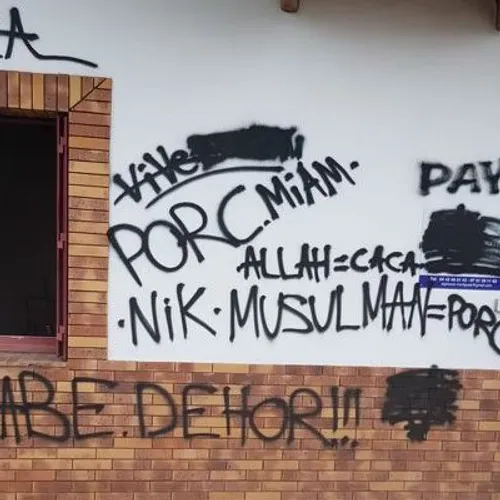 A
ViVe
PAY
PORC.MiAM.
ALLAH=CACA
.NiK.MUSULMAN=PORC
ABE.DEHOR!!!